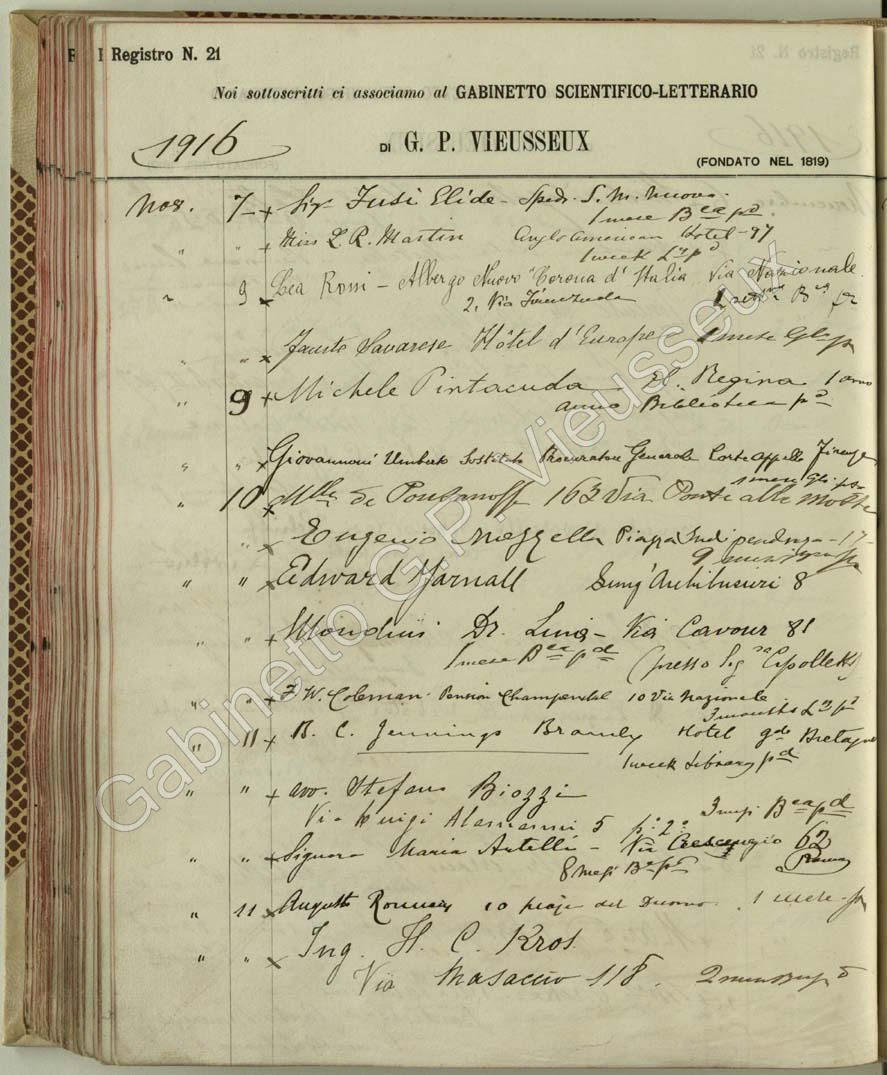 Registro N. 21
Noi sottoscritti ci associamo al GABINETTO SCIENTIFICO-LETTERARIO
1916
DI G. P. VIEUSSEUX
(FONDATO NEL 1819)
Nov. 7 Sig.ra Fusi Elide - Sped. S. M. Nuova.
1 mese Bca pd
" " Miss L. R. Martin Anglo American Hotel - 97
1 week Ly pd
" 9 Lea Rossi - Albergo Nuovo "Corona d'Italia Via Nazionale
2, Via Faenza
" " Fausto Savarese Hôtel d'Europe 1 mese
" 9 Michele Pintacuda H. Regina 1 anno
anno Biblioteca pd
" " Giovannoni Umberto Sostituto Procuratore Generale Corte Appello Firenze
" 10 Mlle de 163 Via Ponte alle Mosse
" Eugenio Mezzella Piazza Indipendenza - 17 -
9 mesi
" " Edward Yarnall Lung' Archibusieri 8
" " Mondini Dr. Luigi - Via Cavour 81
1 mese Bca pd (presso Sig.ra Cipolletti)
" " F. W. Coleman - Pension Champendal 10 Via Nazionale
3 months Ly pd
" 11 B. C. Jennings Bramly Hotel gde Bretagne
1 week Library pd
" " avv. Stefano Biozzi
Via Luigi Alamanni 5 p.o 2.o 3 mesi Bca pd
" " Signora Maria Antelli - Via Crescenzio 62
8 mesi Bca pd Roma
" 11 Augusto 10 piazza del Duomo. 1 mese
" " Ing. H. C. Kros
Via Masaccio 118. 2 mesi
Gabinetto G. P. Vieusseux